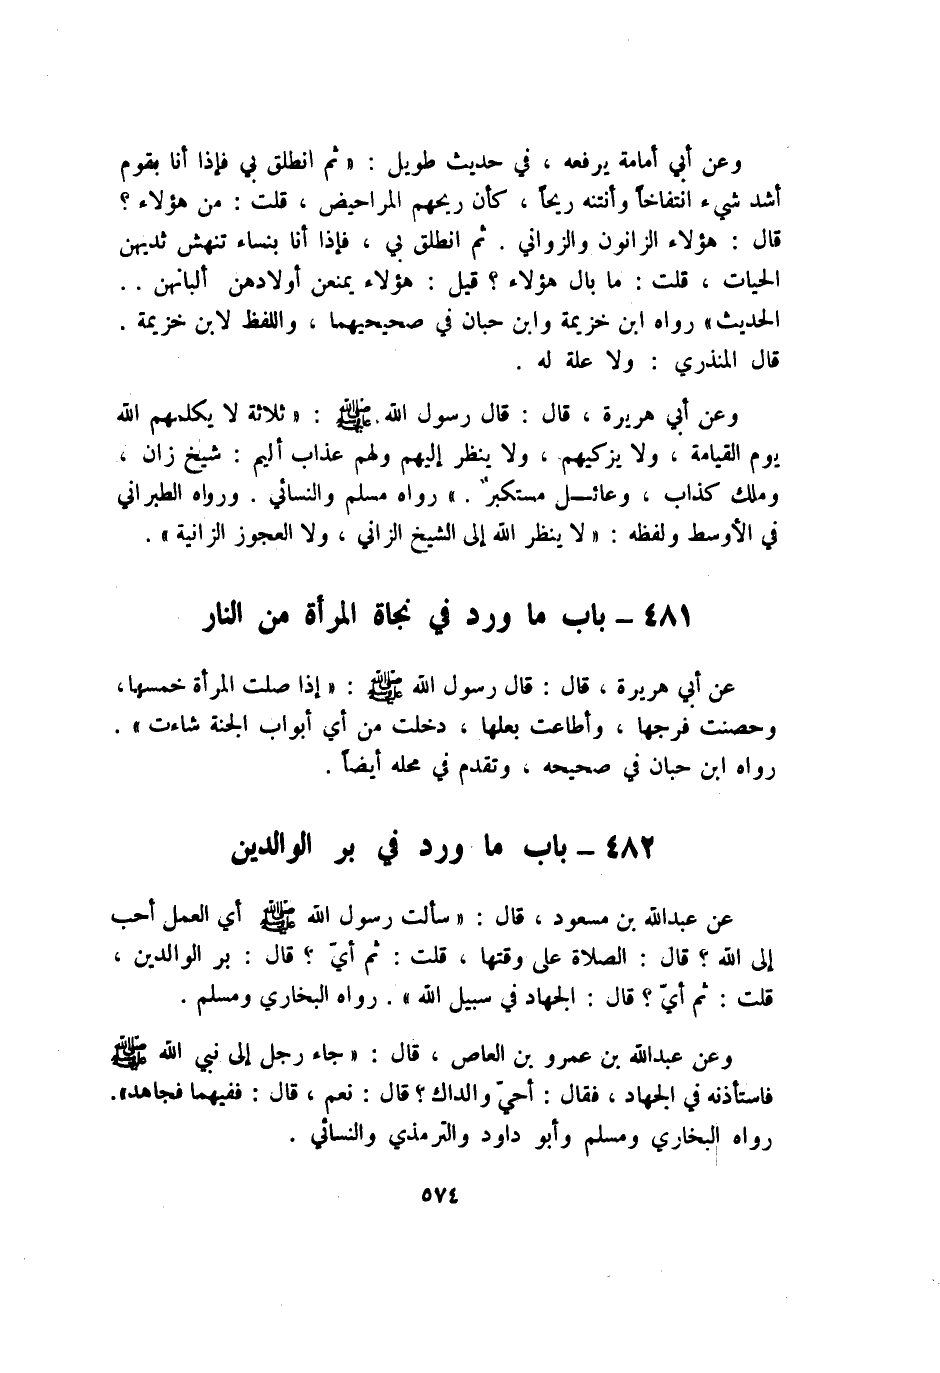 وعن أبي أمامة يرفعه ، في حديث طويل : « ثم انطلق بي فإذا أنا بقوم
أشد شيء انتفاخاً وأنتنه ريحاً ، كأن ريحهم المراحيض ، قلت : من هؤلاء ؟
قال : هؤلاء الزانون والزواني . ثم انطلق بي ، فإذا أنا بنساء تنهش ثديهن
الحيات ، قلت : ما بال هؤلاء ؟ قيل : هؤلاء يمنعن أولادهن ألبانهن . .
الحديث» رواه ابن خزيمة وابن حبان في صحيحيهما ، واللفظ لابن خزيمة .
قال المنذري : ولا علة له .
وعن أبي هريرة ، قال : قال رسول الله ﷺ : « ثلاثة لا يكلمهم الله
يوم القيامة ، ولا يزكيهم ، ولا ينظر إليهم ولهم عذاب أليم : شيخ زان ،
وملك كذاب ، وعائــل مستكبرٌ . » رواه مسلم والنسائي . ورواه الطبراني
في الأوسط ولفظه : « لا ينظر الله إلى الشيخ الزاني ، ولا العجوز الزانية » .
٤٨١ – باب ما ورد في نجاة المرأة من النار
عن أبي هريرة ، قال : قال رسول الله ﷺ : « إذا صلت المرأة خمسها،
وحصنت فرجها ، وأطاعت بعلها ، دخلت من أي أبواب الجنة شاءت » .
رواه ابن حبان في صحيحه ، وتقدم في محله أيضاً .
٤٨٢ – باب ما ورد في بر الوالدين
عن عبدالله بن مسعود ، قال : « سألت رسول الله ﷺ أي العمل أحب
إلى الله ؟ قال : الصلاة على وقتها ، قلت : ثم أيّ ؟ قال : بر الوالدين ،
قلت : ثم أيّ ؟ قال : الجهاد في سبيل الله » . رواه البخاري ومسلم .
وعن عبدالله بن عمرو بن العاص ، قال : « جاء رجل إلى نبي الله ﷺ
فاستأذنه في الجهاد ، فقال : أحيّ والداك ؟ قال : نعم ، قال : ففيهما فجاهد».
رواه البخاري ومسلم وأبو داود والترمذي والنسائي .
٥٧٤